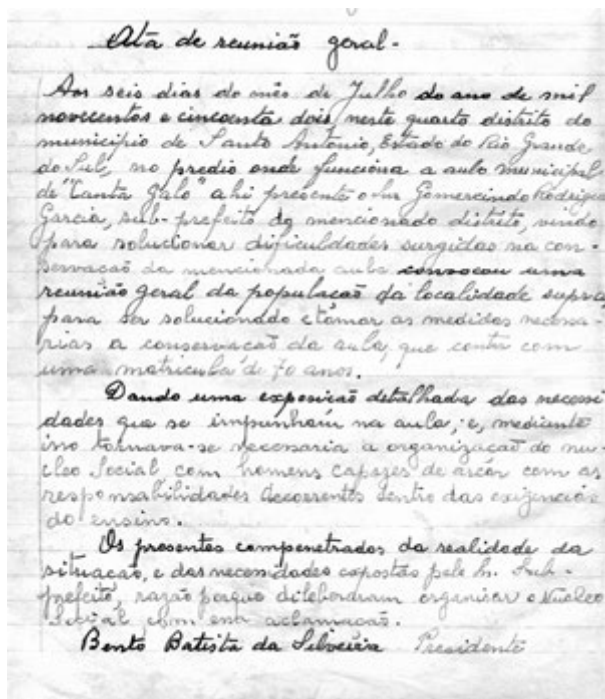 Ata de reunião geral.
Aos seis dias do mês de Julho do ano de mil
novecentos e cincoenta dois, neste quarto distrito do
municipio de Santo Antonio, Estado do Rio Grande
do Sul, no predio onde funciona a aula municipal
de "Canta Galo" ahi presente o snr Gomercindo Rodrigues
Garcia, sub-prefeito do mencionado distrito, vindo
para solucionar dificuldades surgidas na con-
servação da mencionada aula convocou uma
reunião geral da população da localidade supra,
para ser solucionado e tomar as medidas necessa-
rias a conservação da aula, que conta com
uma matricula de 70 anos.
Dando uma exposição detalhada das necessi
dades que se impunham na aula, e, mediante
isso tornava-se necessaria a organização do nu-
cleo Social com homens capazes de arcar com as
responsabilidades decorrentes dentro das exigencias
do ensino.
Os presentes compenetrados da realidade da
situação, e das necessidades expostas pelo Sub-
prefeito, razão porque organisar o Nucleo
Social com aclamação.
Bento Batista da Silveira Presidente